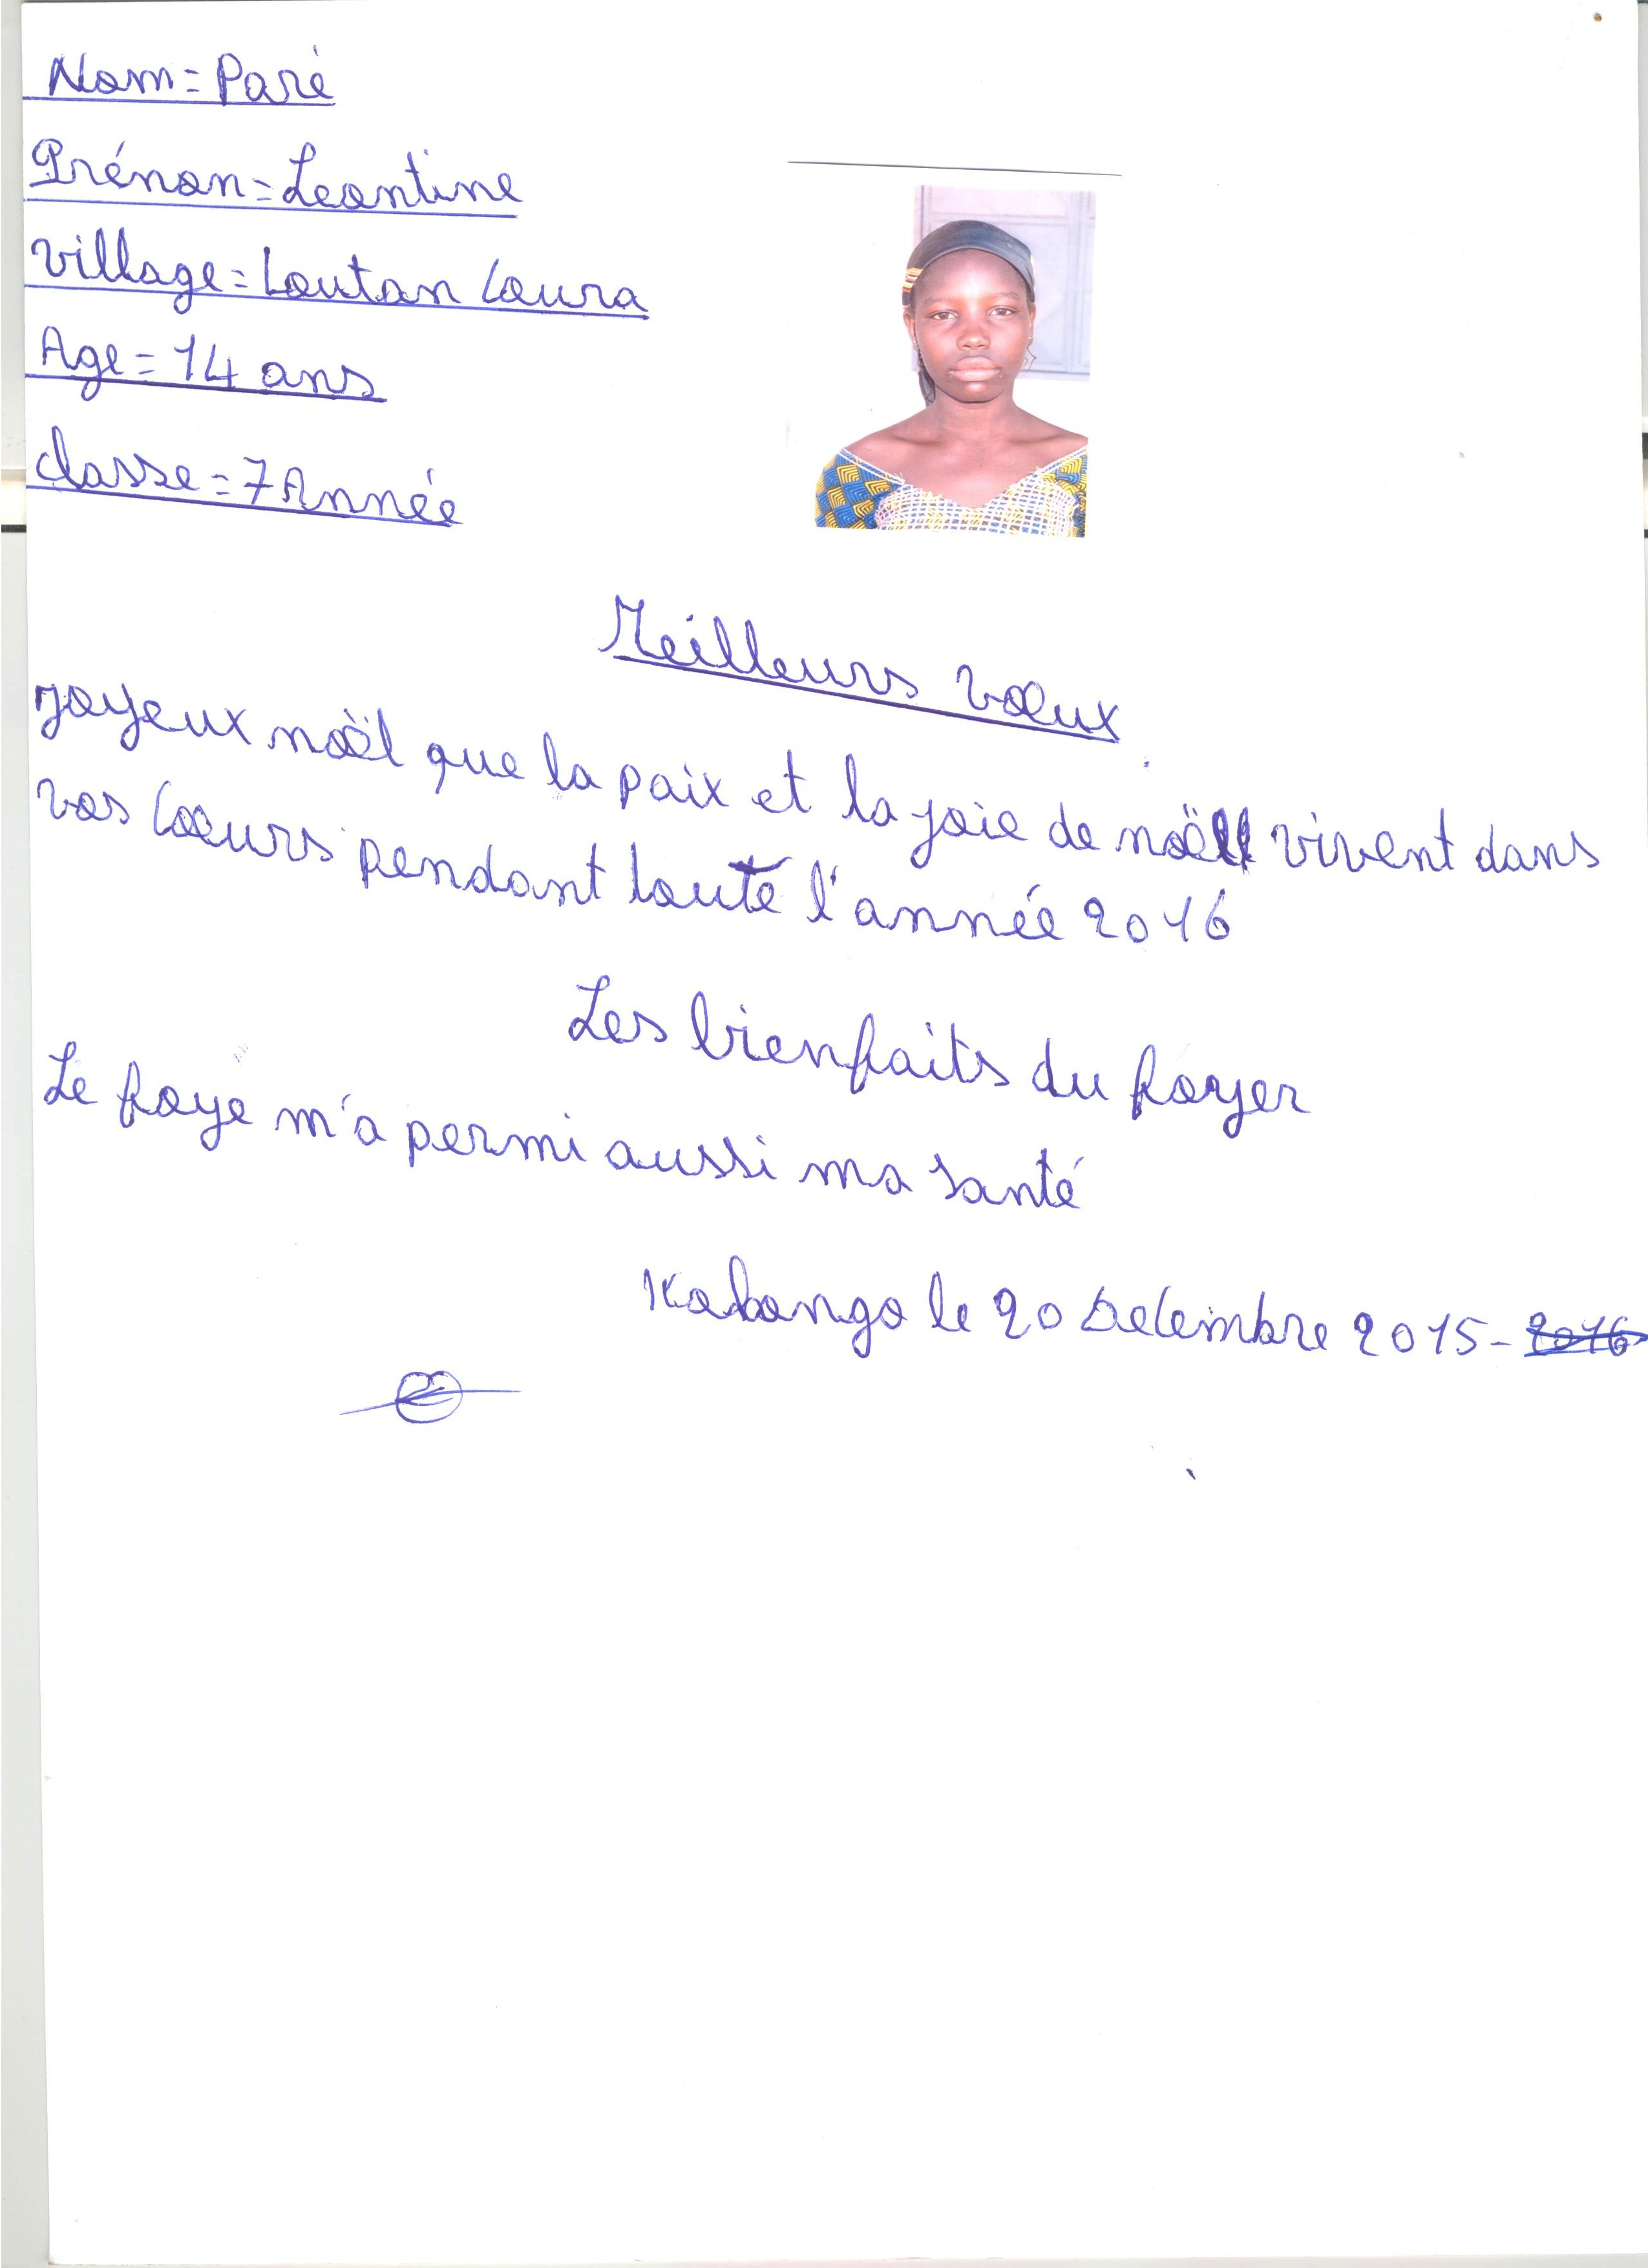 Nom = Paré
Prénon = Leontine
village = Coutan Coura
Age = 14 ans
classe = 7 Année
Meilleurs vœux
joyeux noël que la paix et la joie de noël vivent dans
vos Cœurs pendant toute l'année 2016
Les bienfaits du foyer
Le foye m'a permi aussi ma santé
le 20 Decembre 2015 - 2016